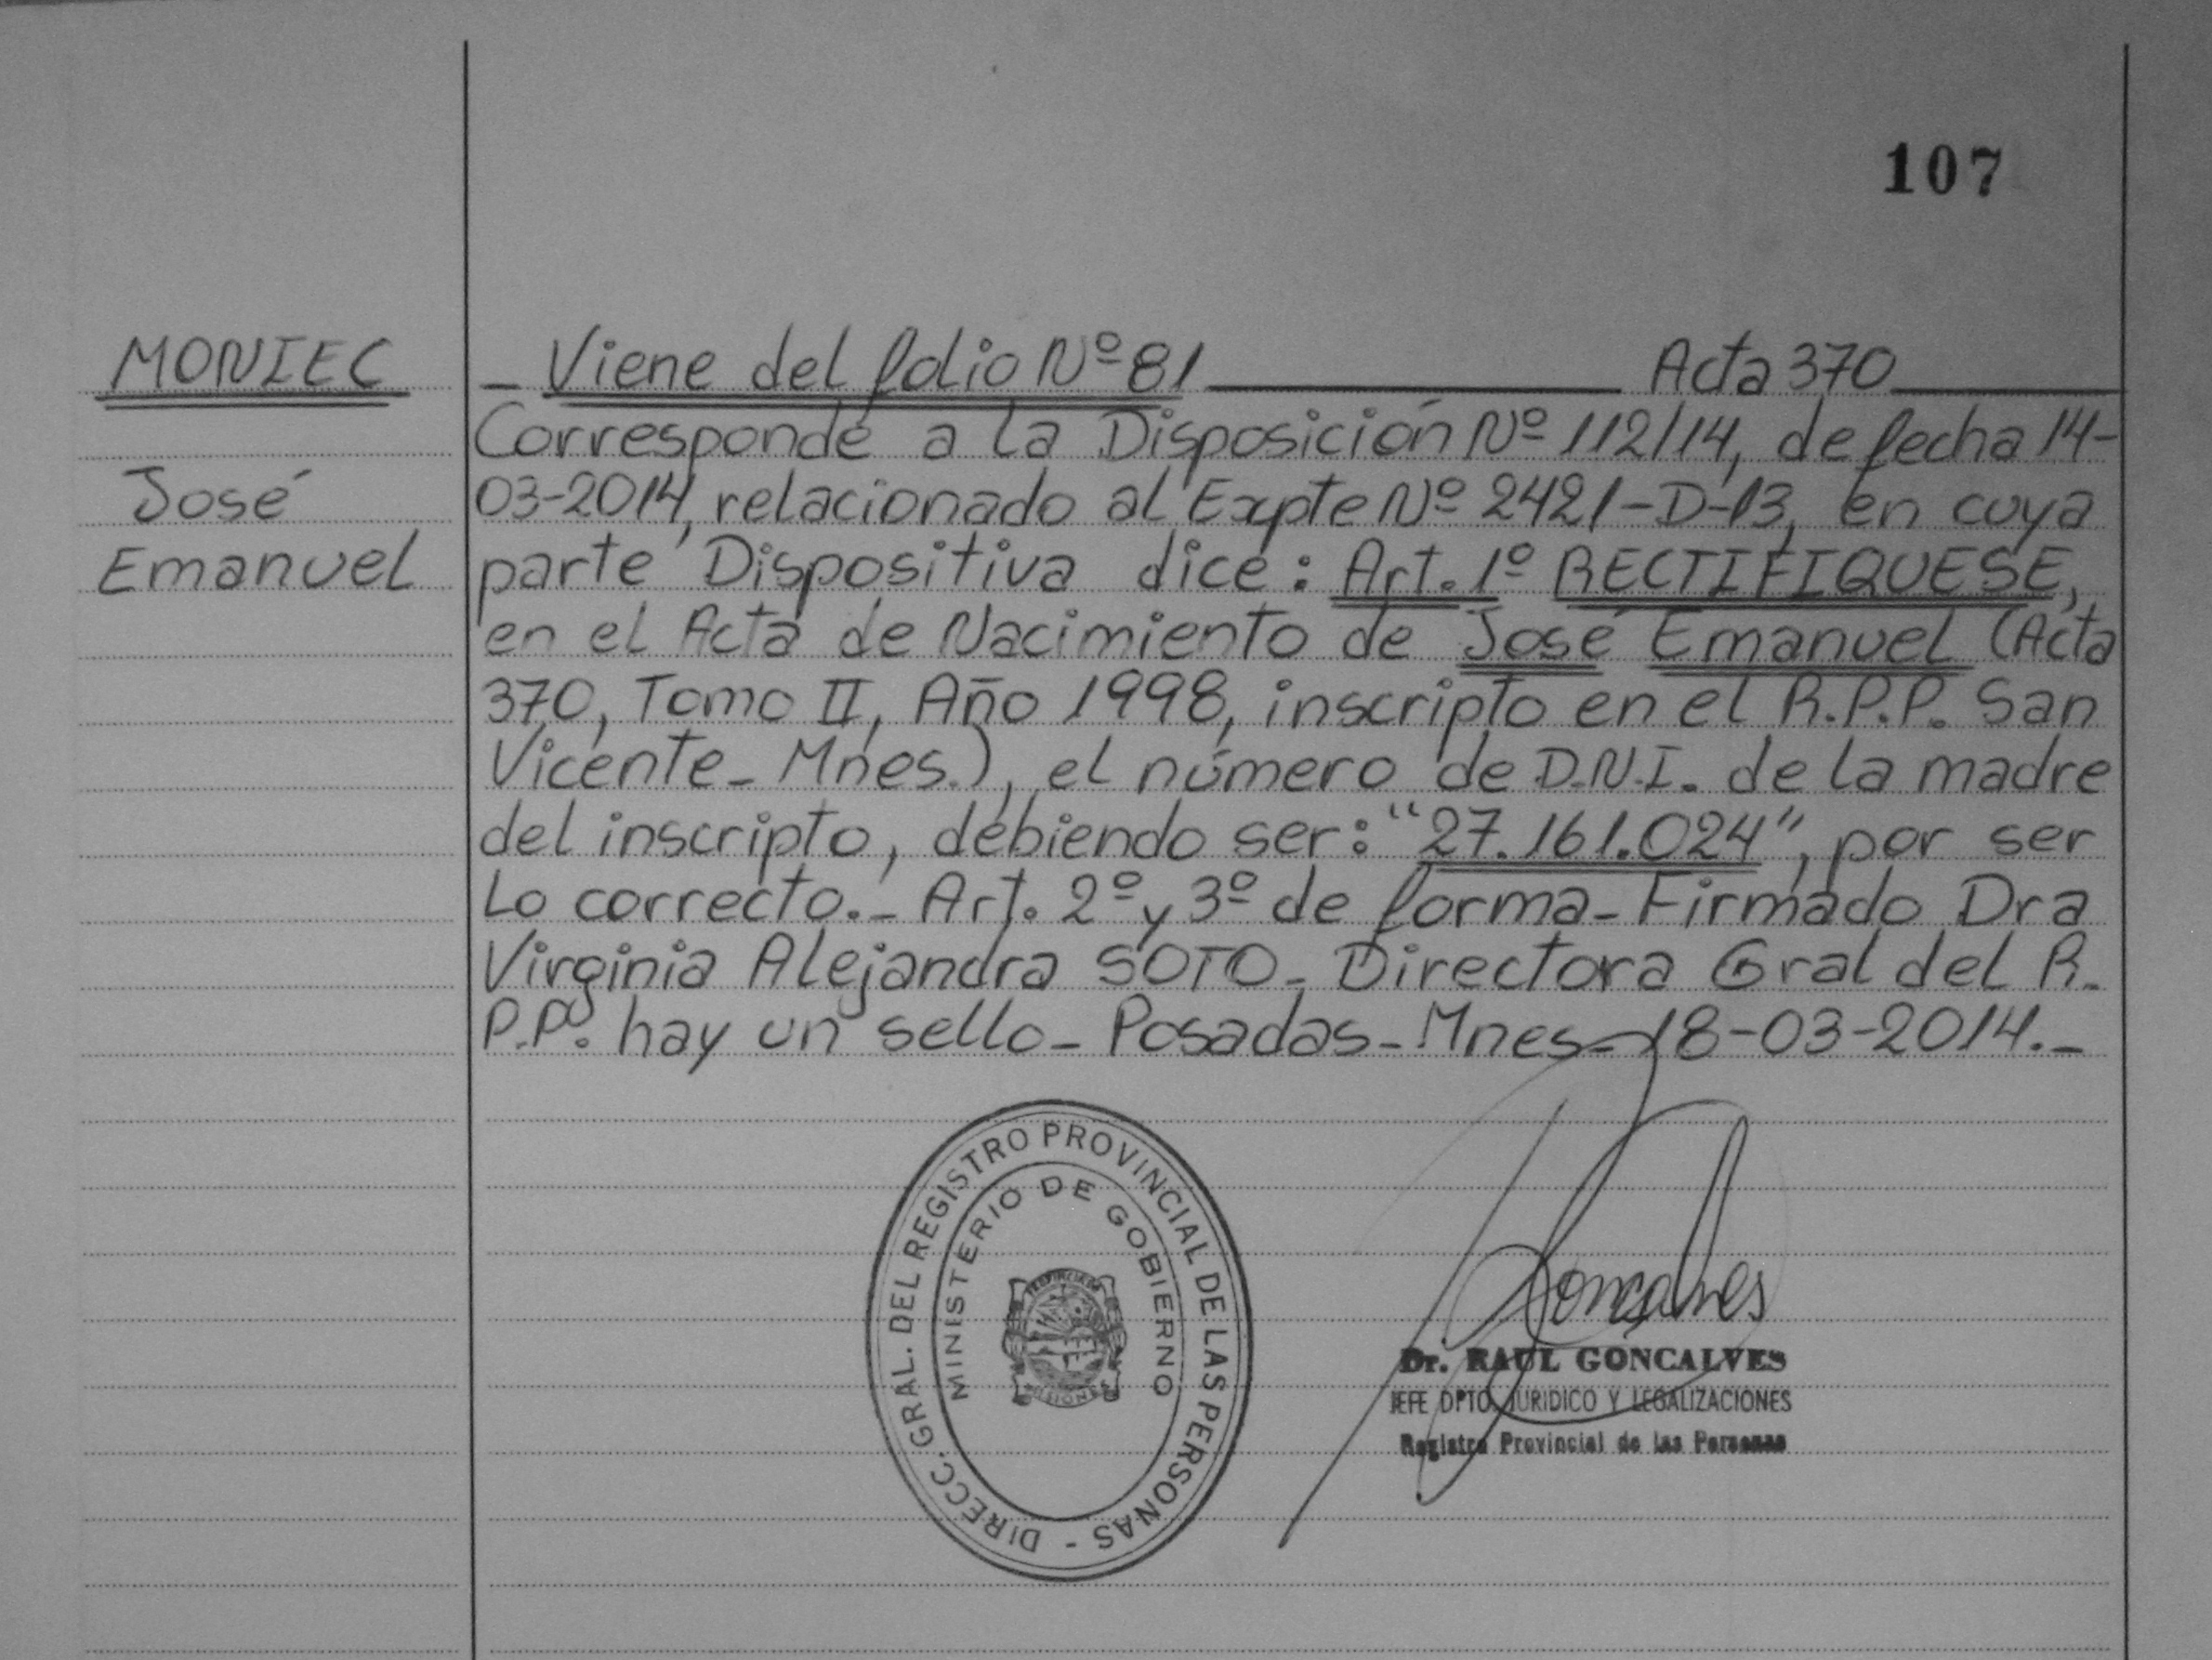 107
MONIEC
José
Emanuel
_ Viene del folio Nº 81 Acta 370
Corresponde a la Disposición Nº 112/14, de fecha 14-
03-2014, relacionado al Expte Nº 2421-D-13, en cuya
parte Dispositiva dice: Art. 1º RECTIFIQUESE,
en el Acta de Nacimiento de José Emanuel (Acta
370, Tomo II, Año 1998, inscripto en el R.P.P. San
Vicente_ Mnes.), el número de D.N.I. de la madre
del inscripto, debiendo ser: "27.161.024", por ser
lo correcto._ Art. 2º y 3º de forma_ Firmado Dra
Virginia Alejandra SOTO_ Directora Gral del R.
P.P. hay un sello_ Posadas_ Mnes_ 18-03-2014._
DIRECC. GRAL. DEL REGISTRO PROVINCIAL DE LAS PERSONAS -
MINISTERIO DE GOBIERNO
PROVINCIA DE
MISIONES
Goncalves
Dr. RAUL GONCALVES
JEFE DPTO. JURIDICO Y LEGALIZACIONES
Registro Provincial de las Personas